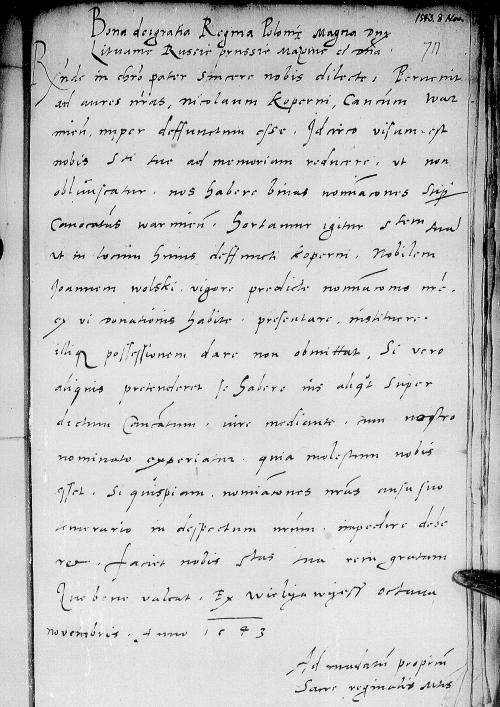 1543. 8 Nov.
Bona dei gratia Regina Polonię Magna Dux
Lituanie Russie prussie Maxovie et Dna.
Rnde in chro pater sincere nobis dilecte, Peruenit
ad aures nras, nicolaum Koperni, Cancum war
mien, nuper deffunctum esse. Idcirco visum est
nobis S ti tue ad memoriam reducere, ut non
obliuiscatur, nos habere binas nominacones Supr
Canocatus warmien. Hortamur igitur S tem tuam
ut in locum huius deffuncti Koperni. Nobilem
Joannem wolski, vigore predicte nominaconis nre,
ex vi donationis habite, presentare, instituere
illiq possessionem dare non obmittat, Si vero
aliquis pretenderet se habere ius aliqd super
dictum Canctum, iure mediante, cum nostro
nominato experiatur, quia molestum nobis
esset, Si quispiam, nominacones nras ausu suo
temerario in despectum nrum, impedire debe
ret, faciet nobis Stas tua rem gratam
Que bene valeat, Ex octaua
novembris, Anno 1543
Ad mandatum proprium
Sacre reginalis Mtis